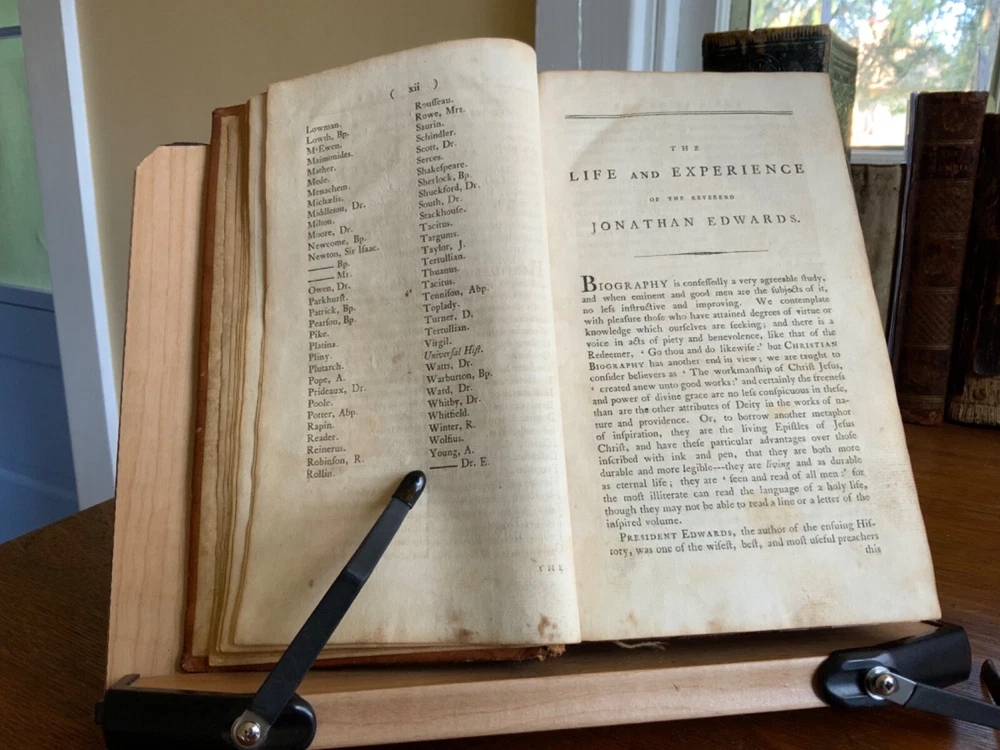 ( xii )
Lowman.
Lowth, Bp.
M'Ewen.
Maimonides.
Mather.
Mede.
Menachem.
Michælis.
Middleton, Dr.
Milton.
Moore, Dr.
Newcome, Bp.
Newton, Sir Isaac.
—— Bp.
—— Mr.
Owen, Dr.
Parkhurſt.
Patrick, Bp.
Pearſon, Bp.
Pike.
Platina.
Pliny.
Plutarch.
Pope, A.
Prideaux, Dr.
Poole.
Potter, Abp.
Rapin.
Reader.
Reinerus.
Robinſon, R.
Rollin.
Rouſſeau.
Rowe, Mrs.
Saurin.
Schindler.
Scott, Dr.
Serces.
Shakeſpeare.
Sherlock, Bp.
Shuckford, Dr.
South, Dr.
Stackhouſe.
Tacitus.
Targums.
Taylor, J.
Tertullian.
Thuanus.
Tacitus.
Tenniſon, Abp.
Toplady.
Turner, D.
Tertullian.
Virgil.
Univerſal Hiſt.
Watts, Dr.
Warburton, Bp.
Ward, Dr.
Whitby, Dr.
Whitfield.
Winter, R.
Wolfius.
Young, A.
—— Dr. E.
THE
LIFE AND EXPERIENCE
OF THE REVEREND
JONATHAN EDWARDS.
BIOGRAPHY is confeſſedly a very agreeable ſtudy,
and when eminent and good men are the ſubjects of it,
no leſs inſtructive and improving. We contemplate
with pleaſure thoſe who have attained degrees of virtue or
knowledge which ourſelves are ſeeking; and there is a
voice in acts of piety and benevolence, like that of the
Redeemer, ‘ Go thou and do likewiſe:’ but CHRISTIAN
BIOGRAPHY has another end in view; we are taught to
conſider believers as ‘ The workmanſhip of Chriſt Jeſus,
‘ created anew unto good works:’ and certainly the freeneſs
and power of divine grace are no leſs conſpicuous in theſe,
than are the other attributes of Deity in the works of na-
ture and providence. Or, to borrow another metaphor
of inſpiration, they are the living Epiſtles of Jeſus
Chriſt, and have theſe particular advantages over thoſe
inſcribed with ink and pen, that they are both more
durable and more legible---they are living and as durable
as eternal life; they are ‘ ſeen and read of all men:’ for
the moſt illiterate can read the language of a holy life,
though they may not be able to read a line or a letter of the
inſpired volume.
PRESIDENT EDWARDS, the author of the enſuing Hiſ-
tory, was one of the wiſeſt, beſt, and moſt uſeful preachers
this